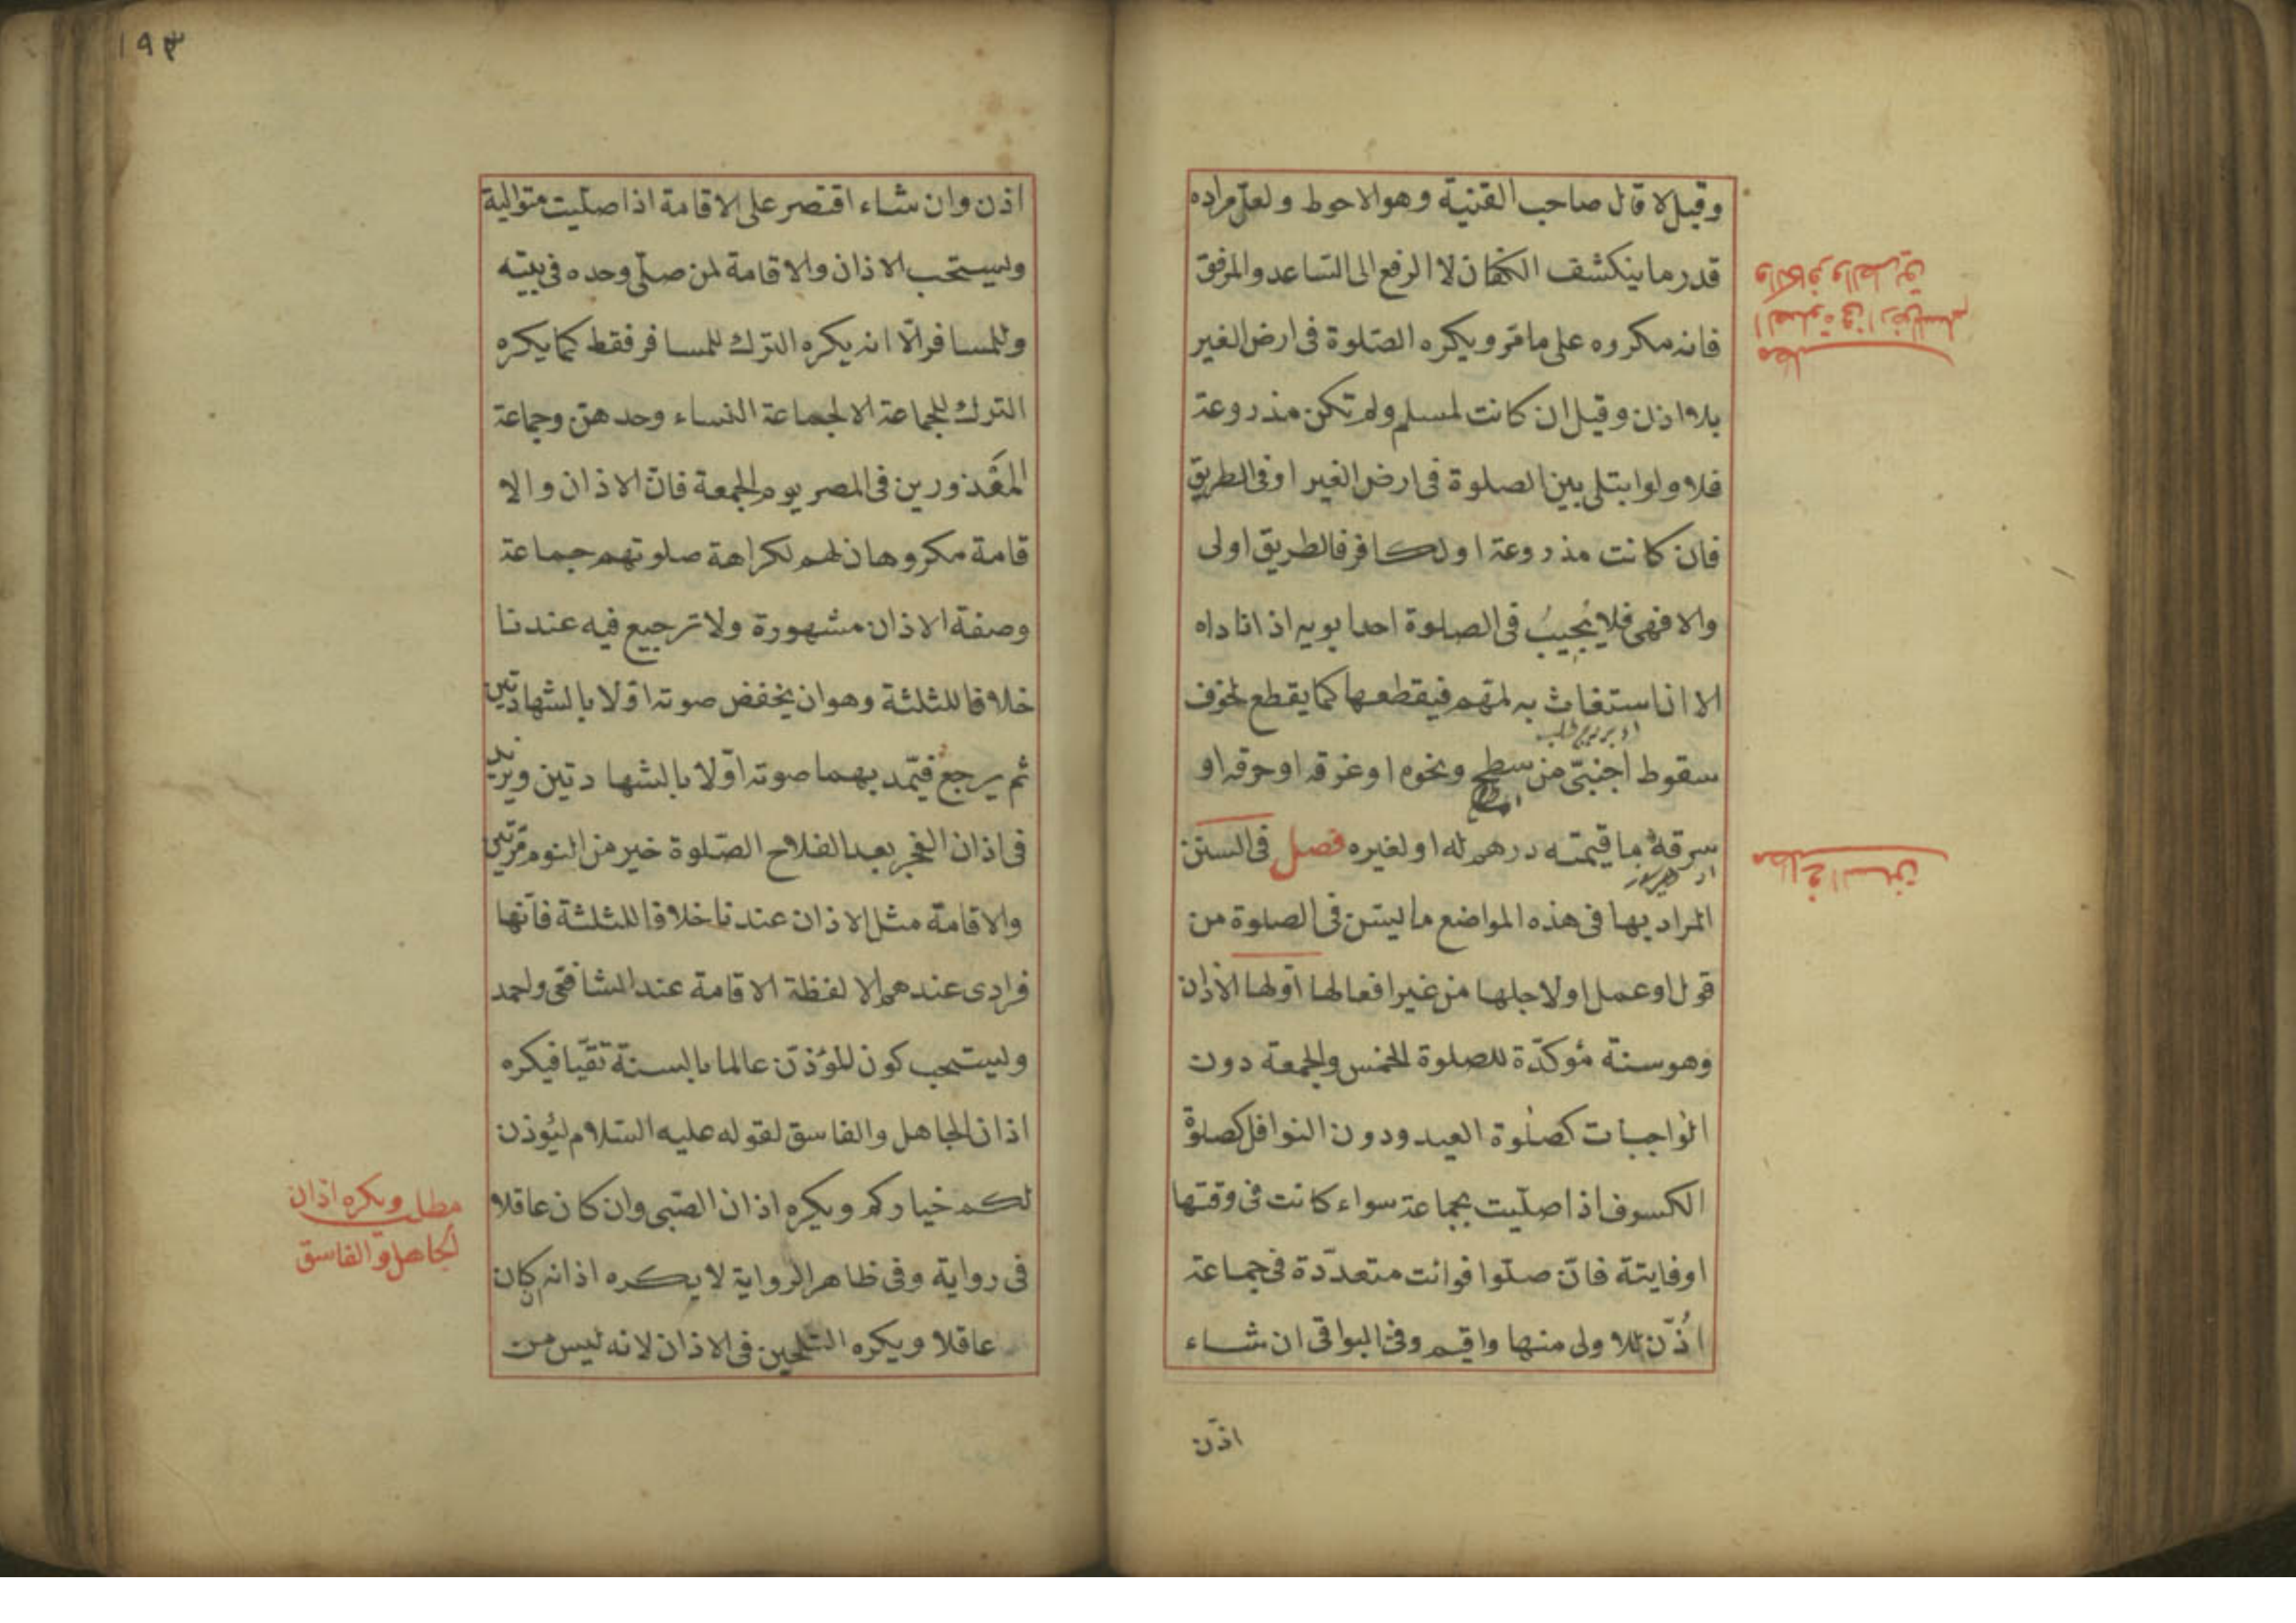 وقيل لا قال صاحب القنية وهو الاحوط ولعل مراده
قدر ما ينكشف الكفان لا الرفع الى الساعد والمرفق
فانه مكروه على ما مر ويكره الصلوة فى ارض الغير
بلا اذن وقيل ان كانت لمسلم ولم تكن مذروعة
فلا ولو ابتلى بين الصلوة فى ارض الغير او فى الطريق
فان كانت مذروعة او لكافر فالطريق اولى
والا فهى فلا يُجيبُ فى الصلوة احد ابويه اذا ناداه
الا ان استغاث به لمهم فيقطعها كما يقطع لخوف
سقوط اجنبىّ من سطح ونحوه او غرقه او حرقه او
سرقة ما قيمته درهم له او لغيره فصل فى السنن
المراد بها فى هذه المواضع ما ليسن فى الصلوة من
قول او عمل او لاجلها من غير افعالها اولها الاذان
وهو سنة مؤكدّة للصلوة الخمس والجمعة دون
الواجبات كصلوة العيد ودون النوافل كصلوة
الكسوف اذا صلّيت بجماعة سواء كانت فى وقتها
او فايتة فانّ صلّوا فوائت متعدّدة فى جماعة
اُذّن للاولى منها واقيم وفى البواقى ان شاء
اذّن
والكافر والطريق
الصلوة فى ارض المسلم
مطلب
مطلب فى السنن
١٩٣
اذن وان شاء اقتصر على الاقامة اذا صلّيت متوالية
ويستحب الاذان والاقامة لمن صلّى وحده فى بيته
وللمسافر الّا انه يكره الترك للمسافر فقط كما يكره
الترك للجماعة الا لجماعة النساء وحدهن وجماعة
المعذورين فى المصر يوم الجمعة فانّ الاذان والا
قامة مكروهان لهم لكراهة صلوتهم جماعة
وصفة الاذان مشهورة ولا ترجيع فيه عندنا
خلافا للثلثة وهو ان يخفض صوته اوّلا بالشهادتين
ثم يرجع فيمّد بهما صوته اوّلا بالشهادتين ويزيد
فى اذان الفجر بعد الفلاح الصّلوة خير من النوم مرّتين
والاقامة مثل الاذان عندنا خلافا للثلثة فانّها
فرادى عندهم الا لفظة الاقامة عند الشافعى واحمد
وليستحب كون المؤذّن عالما بالسنة تقيّا فيكره
اذان الجاهل والفاسق لقوله عليه السّلام ليُوذن
لكم خياركم ويكره اذان الصّبى وان كان عاقلا
فى رواية وفى ظاهر الرواية لا يكره اذانه ان كان
عاقلا ويكره التلحين فى الاذان لانه ليس من
مطلب ويكره اذان
الجاهل والفاسق